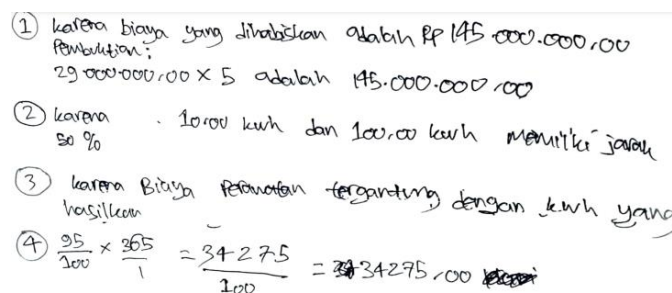 ① karena biaya yang dihabiskan adalah Rp 145.000.000,00
Pembuktian:
29.000.000,00 × 5 adalah 145.000.000,00
② karena 10.00 kwh dan 100,00 kwh memiliki jarak
50 %
③ karena Biaya Perawatan tergantung dengan kwh yang
hasilkan
④ 95/100 × 365/1 = 34275/100 = 34275,00